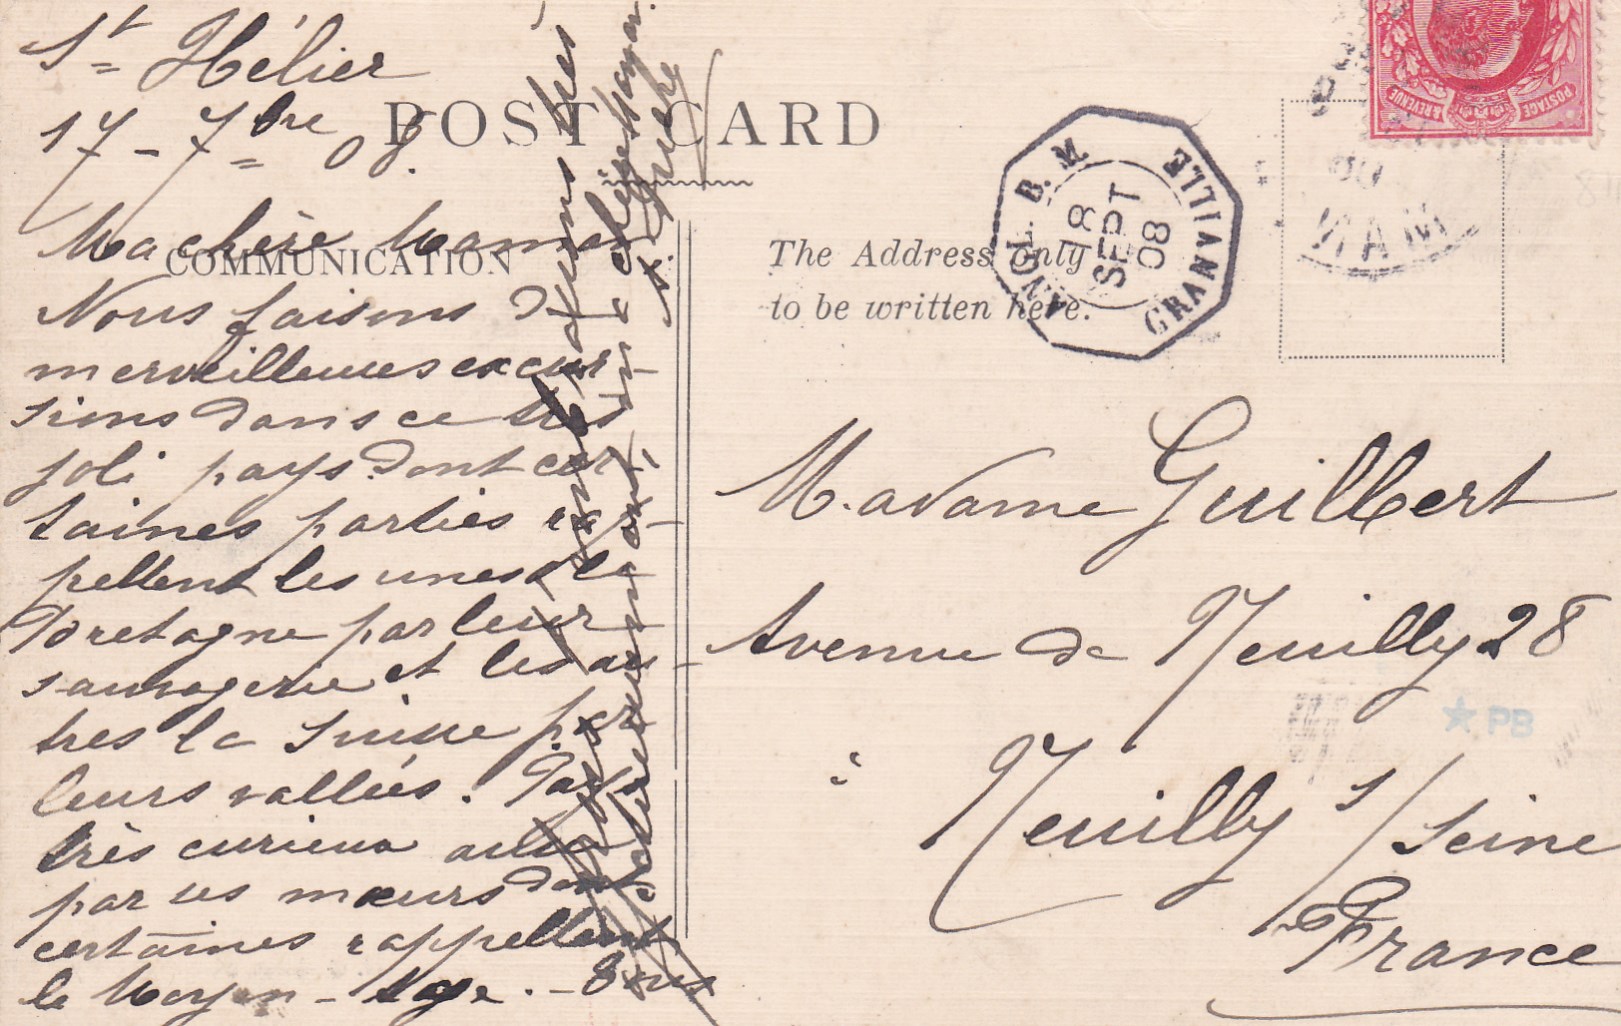 St Hélier
17 - 7bre 08.
POST CARD
COMMUNICATION
Ma chère Maman
Nous faisons de
merveilleuses excur
sions dans ce très
joli pays dont cer
taines parties rap-
pellent les unes la
Bretagne par leur
sauvagerie et les au-
tres la Suisse par
leurs vallées. Pays
très curieux aussi
par ses mœurs dont
certaines rappellent
le Moyen-age. - Bons
chère Maman.
The Address only
to be written here.
ANGL. B. M
GRANVILLE
18
SEPT
08
POSTAGE & REVENUE
Madame Guilbert
Avenue de Neuilly 28
à
Neuilly s/Seine
France
PB